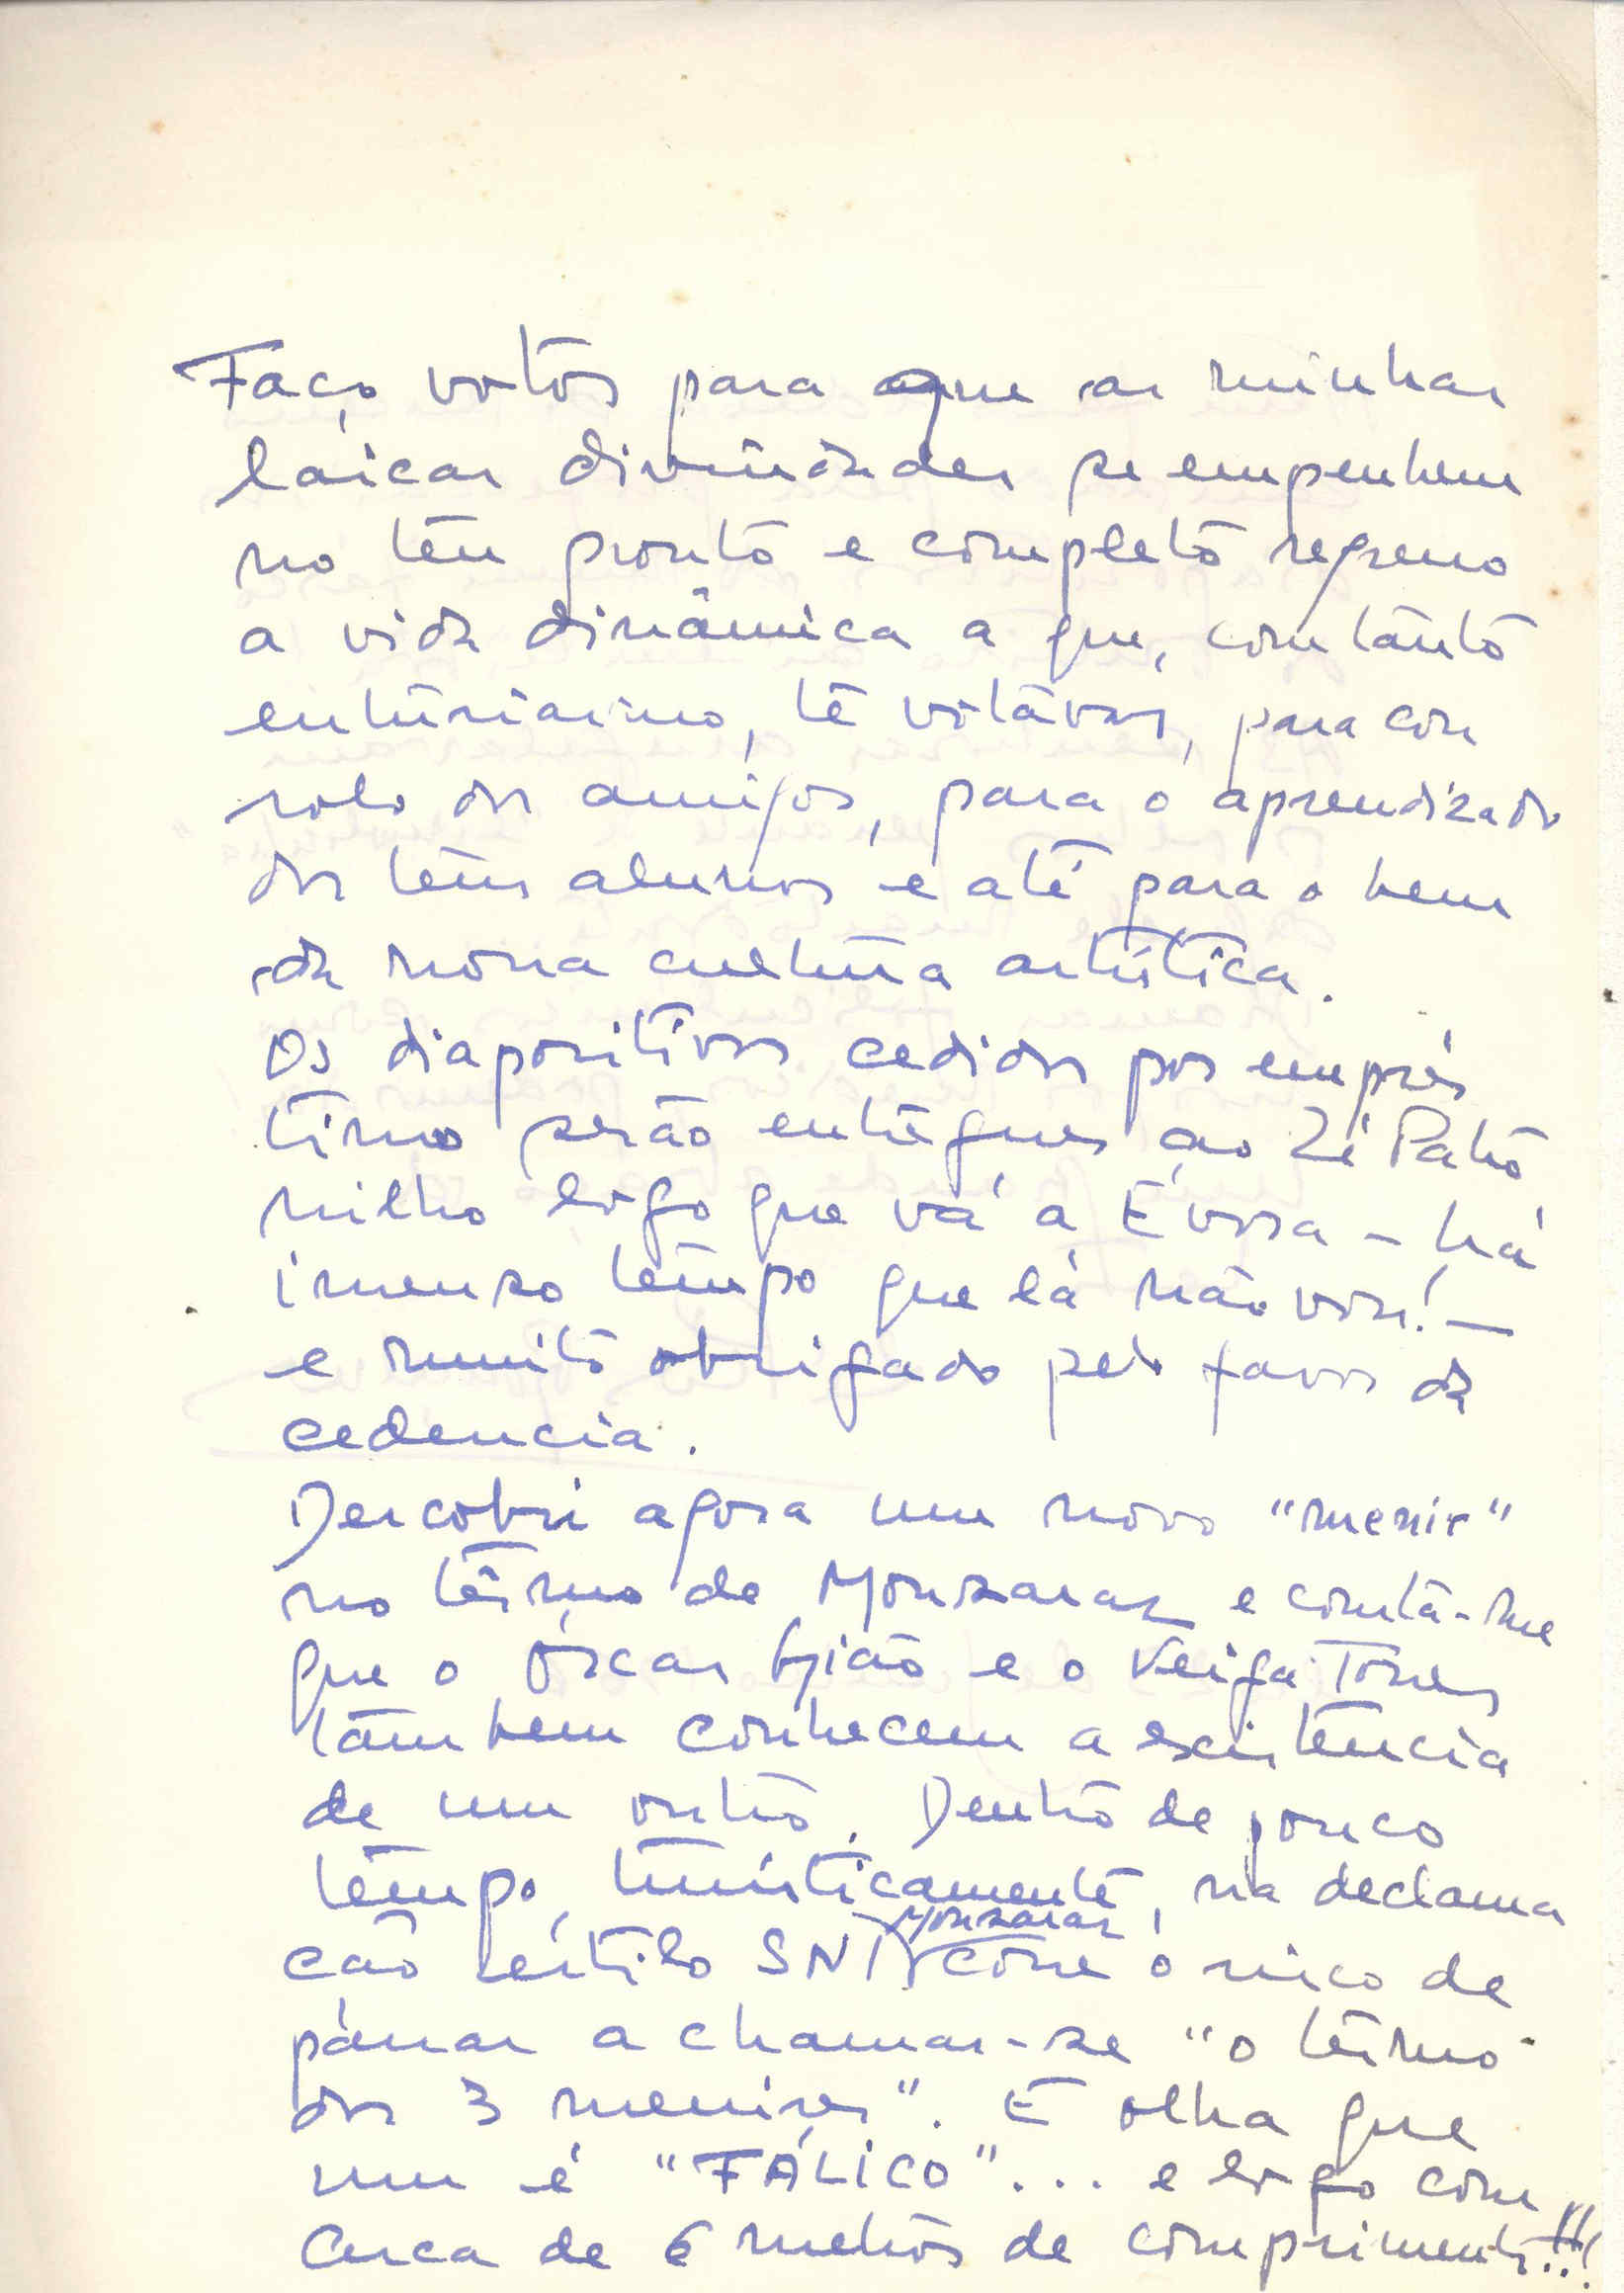 Faço votos para que as minhas
laicas divindades se empenhem
no teu pronto e completo regresso
a vida dinâmica a que, com tanto
entusiasmo, te votavas, para con
solo dos amigos, para o aprendizado
dos teus alunos e até para o bem
da nossa cultura artística.
Os diapositivos cedidos por emprés
timo serão entregues ao Zé Patro
nilho logo que vá a Évora - há
imenso tempo que lá não vou! -
e muito obrigado pelo favor da
cedencia.
Descobri agora um novo "menir"
no têrmo de Monsaraz e consta-me
que o Óscar Gião e o Veiga Torres
tambem conhecem a existência
de um outro. Dentro de pouco
tempo, turísticamente, na declama
cão estilo SNI, Monsaraz corre o risco de
passar a chamar-se "o têrmo
dos 3 menires". E olha que
um é "FÁLICO"... e logo com
cerca de 6 metros de comprimento!!!